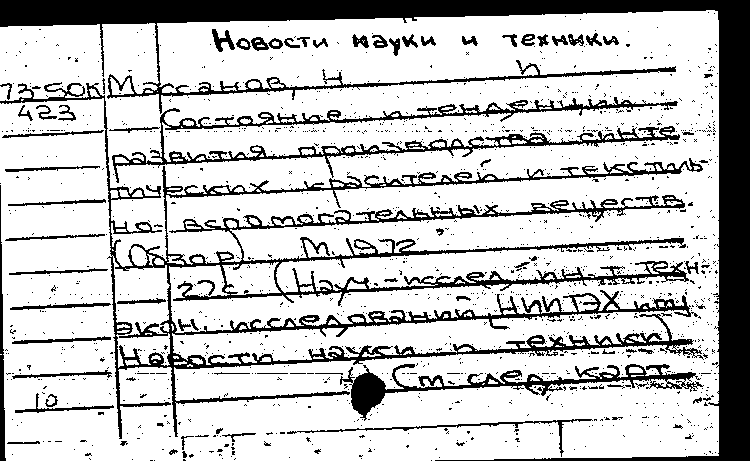 Новости науки и техники.
73-50К Массанов, Н И
423 Состояние и тенденции
развития производства синте-
тических красителей и текстиль-
но-вспомогательных веществ.
(Обзор). М, 1972
27с. (Науч.-исслед. ин-т техн-
экон. исследований, НИИТЭХ
Новости науки и техники)
См. след. карт.
10